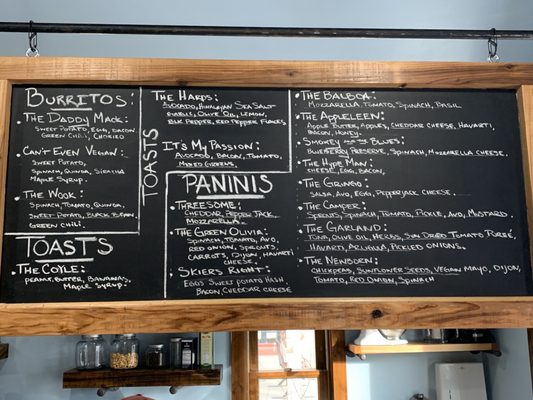 Burritos:
• The Daddy Mack:
Sweet Potato, Egg, Bacon
Green Chili, Chorizo
Can't Even Vegan:
Sweet Potato,
Spinach, Quinoa, Siracha
Maple Syrup.
• The Wook:
Spinach, Tomato, Quinoa,
Sweet Potato, Black Bean,
Green Chili.
Toasts
• The Coyle:
Peanut Butter, Bananas,
Maple Syrup.
Toasts
The Hards:
Avocado, Himalayan Sea Salt
Olive Oil, Lemon,
Blk Pepper, Red Pepper Flakes
It's My Passion:
Avocado, Bacon, Tomato,
Mixed Greens.
Paninis
• Threesome:
Cheddar, Pepper Jack,
Mozzarella.
• The Green Olivia:
Spinach, Tomato, Avo,
Red Onion, Sprouts,
Carrots, Dijon, Havarti
Cheese.
• Skiers Right:
Eggs Sweet Potato Hash
Bacon, Cheddar Cheese
• The Balboa:
Mozzarella, Tomato, Spinach, Basil
• The Appleleen:
Apple Butter, Apples, Cheddar Cheese, Havarti,
Bacon, Honey.
• Smokey and the Blues:
Blueberry Preserve, Spinach, Mozzarella Cheese
• The Hype Man:
Cheese, Egg, Bacon,
• The Gringo:
Salsa, Avo, Egg, Pepperjack Cheese
• The Camper:
Sprouts, Spinach, Tomato, Pickle, Avo, Mustard.
• The Garland:
Tuna, Olive Oil, Herbs, Sun Dried Tomato Purée,
Havarti, Arugula, Pickled Onions.
• The Newborn:
Chickpeas, Sunflower Seeds, Vegan Mayo, Dijon,
Tomato, Red Onion, Spinach